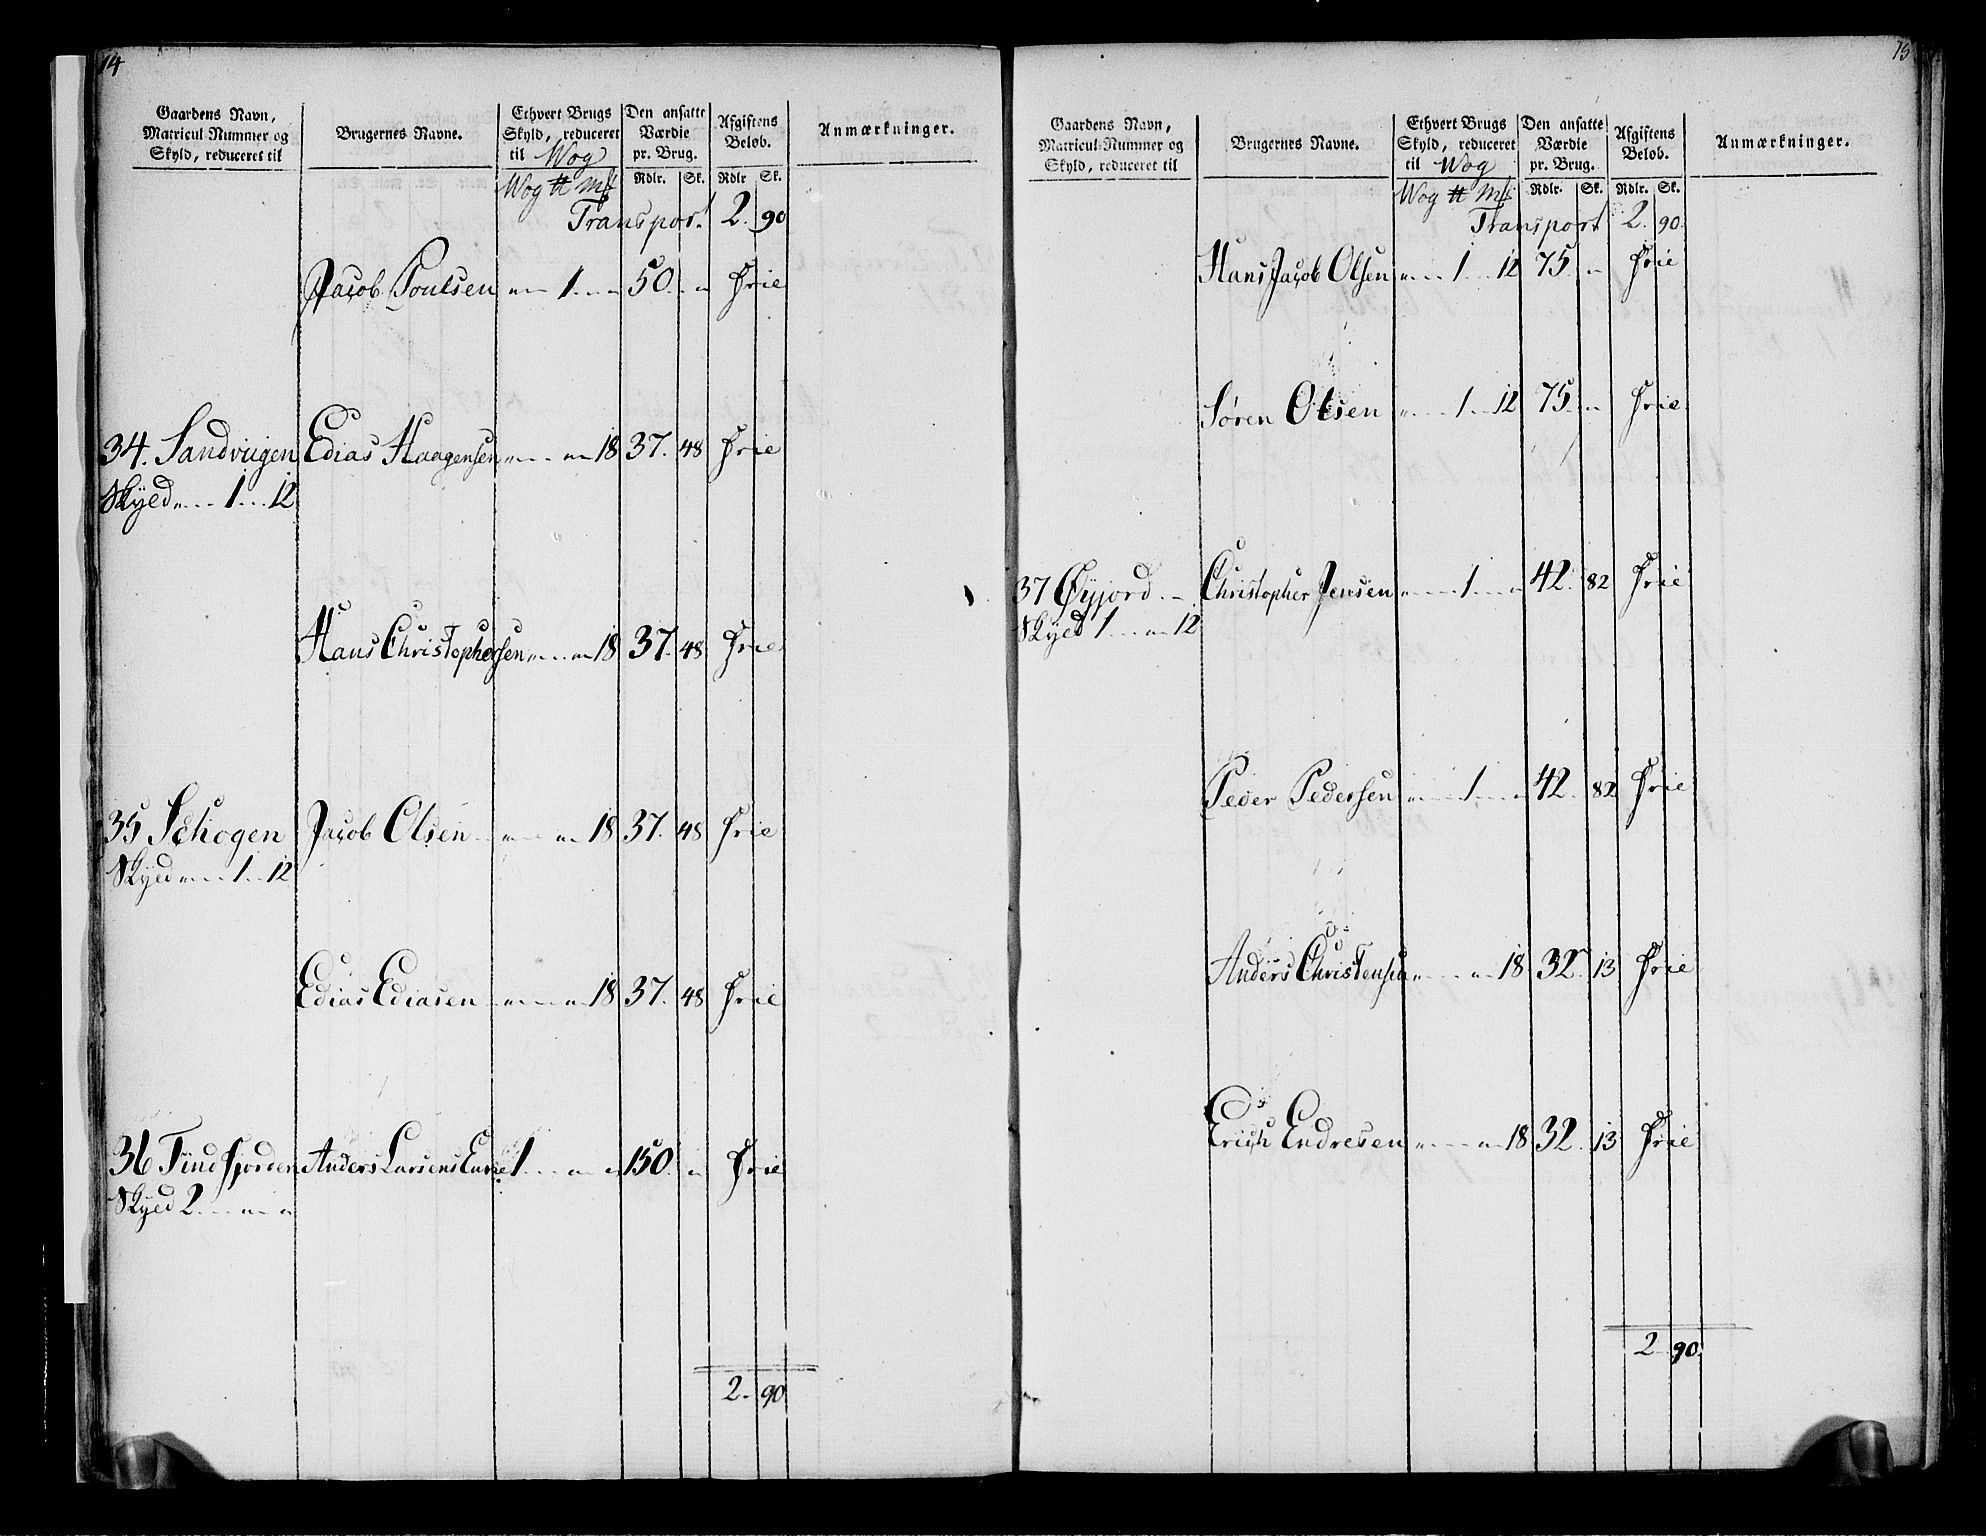 14
Gaardens Navn,
Matricul-Nummer og
Skyld, reduceret til
Brugernes Navne.
Ethvert Brugs
Skyld, reduceret
til Wog
Den ansatte
Værdie
pr. Brug.
Afgiftens
Beløb.
Anmærkninger.
Wog ℔ Mk Rdlr. Sk. Rdlr Sk.
Transport 2. 90
Jacob Poulsen „ 1 „ 50 „ Frie
34. Sandviigen Edias Haagensen „ „ 18 37. 48 Frie
Skyld „ 1 12
Hans Christophersen „ „ 18 37. 48 Frie
35 Schogen Jacob Olsen „ „ 18 37. 48 Frie
Skyld „ 1 12
Edias Ediasen „ „ 18 37. 48 Frie
36 Tindfjorden Anders Larsens Enke 1 „ „ 150 „ Frie
Skyld 2 „ „
2. 90
15
Gaardens Navn,
Matricul-Nummer og
Skyld, reduceret til
Brugernes Navne.
Ethvert Brugs
Skyld, reduceret
til Wog
Den ansatte
Værdie
pr. Brug.
Afgiftens
Beløb.
Anmærkninger.
Wog ℔ Mk Rdlr. Sk. Rdlr. Sk.
Transport 2. 90.
Hans Jacob Olsen „ 1 12 75 „ Frie
Søren Olsen „ 1 12 75 „ Frie
37 Øyjord Christopher Jensen „ 1 „ 42. 82 Frie
Skyld 1 „ 12
Peder Pedersen „ 1 „ 42. 82 Frie
Anders Christensen „ „ 18 32. 13 Frie
Erich Endresen „ „ 18 32. 13 Frie
2 90.